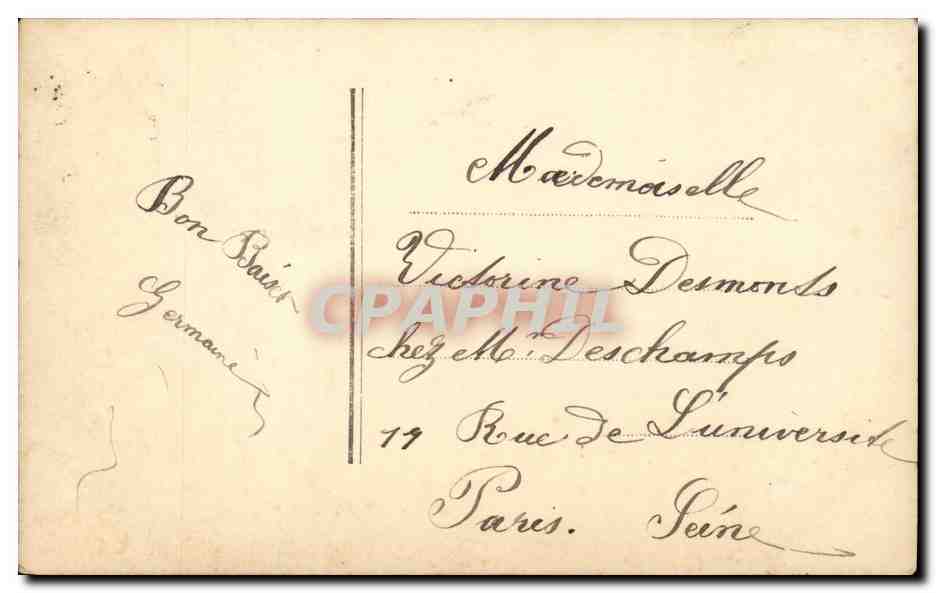 Bon Baiser
Germaine
Mademoiselle
Victorine Desmonts
chez Mr Deschamps
19 Rue de L'université
Paris. Seine
CPAPHIL